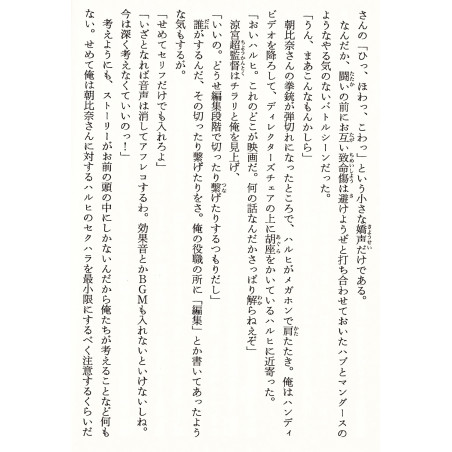 さんの「ひっ、ほわっ、こわっ」という小さな嬌声だけである。
なんだか、闘いの前にお互い致命傷は避けようぜと打ち合わせておいたハブとマングースの
ようなやる気のないバトルシーンだった。
「うん、まあこんなもんかしら」
朝比奈さんの拳銃が弾切れになったところで、ハルヒがメガホンで肩たたき。俺はハンディ
ビデオを降ろして、ディレクターズチェアの上に胡座をかいているハルヒに近寄った。
「おいハルヒ。これのどこが映画だ。何の話なんだかさっぱり解らねえぞ」
涼宮超監督はチラリと俺を見上げ、
「いいの。どうせ編集段階で切ったり繋げたりするつもりだし」
誰がするんだ、その切ったり繋げたりをさ。俺の役職の所に「編集」とか書いてあったよう
な気もするが。
「せめてセリフだけでも入れろよ」
「いざとなれば音声は消してアフレコするわ。効果音とかBGMも入れないといけないしね。
今は深く考えなくていいのっ！」
考えようにも、ストーリーがお前の頭の中にしかないんだから俺たちが考えることなど何も
ない。せめて俺は朝比奈さんに対するハルヒのセクハラを最小限にするべく注意するくらいだ